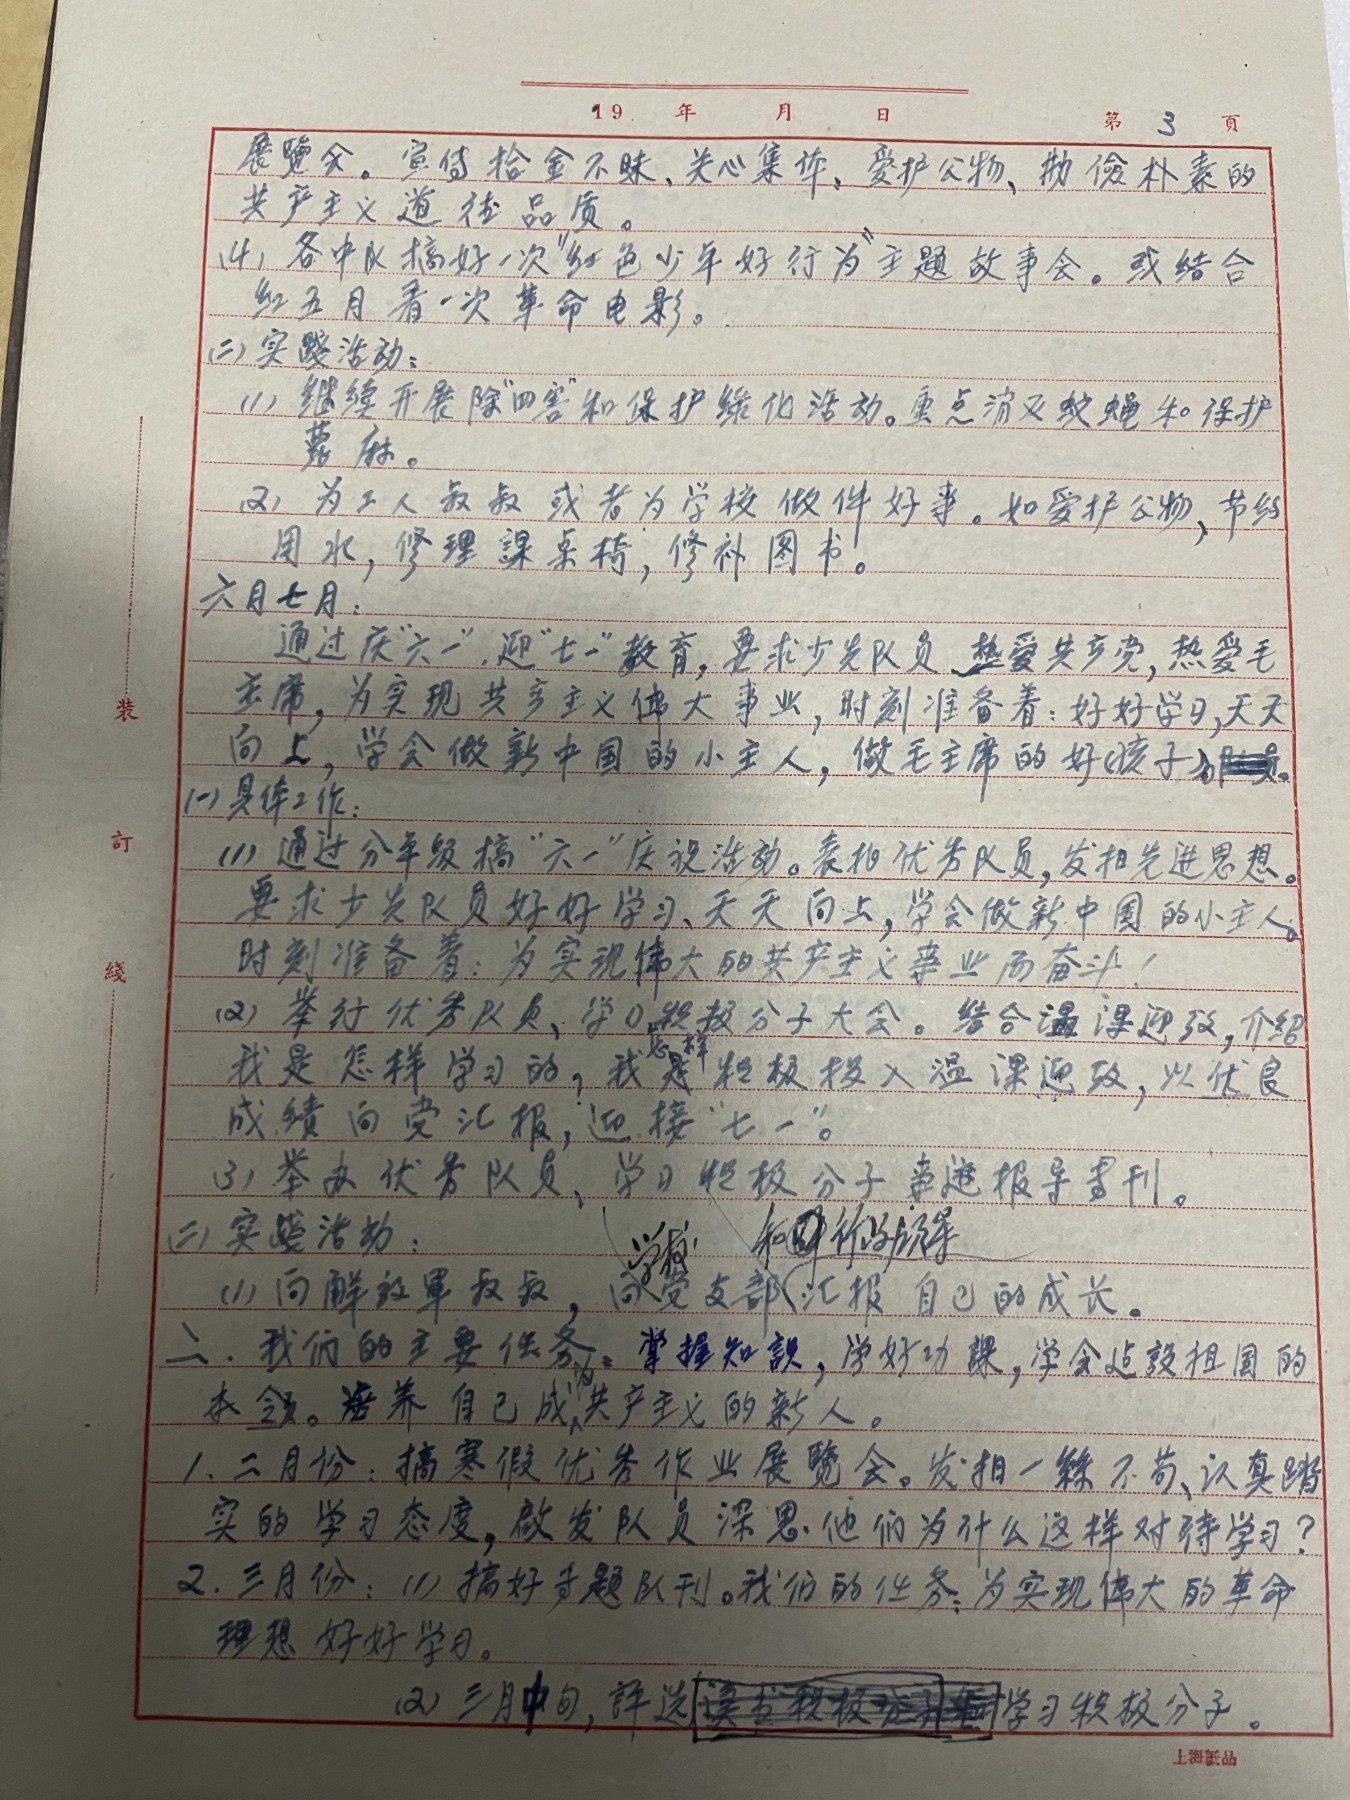 19 年 月 日
第 3 頁
展覽会。宣传拾金不昧、关心集体、爱护公物、勤俭朴素的
共产主义道德品质。
(4) 各中队搞好一次"红色少年好行为"主题故事会。或结合
红五月看一次革命电影。
(二) 实踐活动:
(1) 继续开展除"四害"和保护绿化活动。重点消灭蚊蝇和保护
蓖麻。
(2) 为工人叔叔或者为学校做件好事。如爱护公物、节约
用水,修理課桌椅,修补图书。
六月七月:
通过庆"六一"、迎"七一"教育,要求少先队员热爱共产党,热爱毛
主席,为实现共产主义伟大事业,时刻准备着:好好学习,天天
向上,学会做新中国的小主人,做毛主席的好孩子。
(一) 具体工作:
(1) 通过分年级搞"六一"庆祝活动。表扬优秀队员,发扬先进思想。
要求少先队员好好学习、天天向上,学会做新中国的小主人。
时刻准备着:为实现伟大的共产主义事业而奋斗!
(2) 举行优秀队员、学习积极分子大会。结合温课迎考,介绍
我是怎样学习的,我是怎样积极投入温课迎考,以优良
成绩向党汇报,迎接"七一"。
(3) 举办优秀队员、学习积极分子事迹报导書刊。
(二) 实踐活动:
学校 和
(1) 向解放軍叔叔,向党支部汇报自己的成长。
二. 我们的主要任务: 掌握知識,学好功課,学会建設祖国的
本领。培养自己成为共产主义的新人。
1. 二月份: 搞寒假优秀作业展覽会。发扬一絲不苟、认真踏
实的学习态度,啟发队员深思.他们为什么这样对待学习?
2. 三月份: (1) 搞好专题队刊。我们的任务:为实现伟大的革命
理想好好学习。
(2) 三月中旬,評选学习积极分子。
装
訂
綫